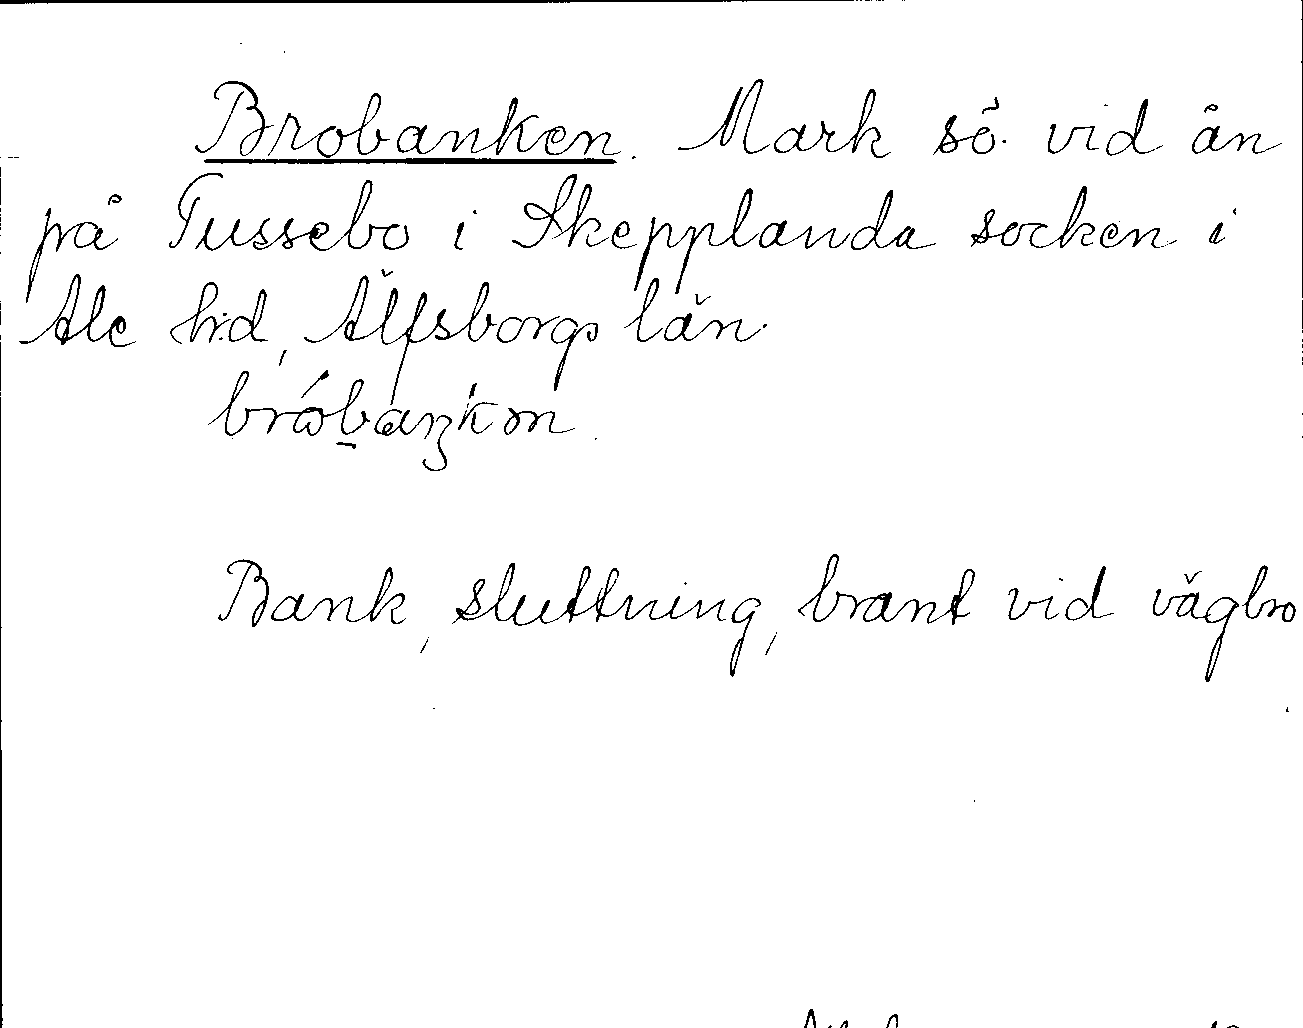 Brobanken. Mark sö. vid ån
på Tussebo i Skepplanda socken i
Ale hd, Älfsborgs län.
Bank, sluttning, brant vid vägbro